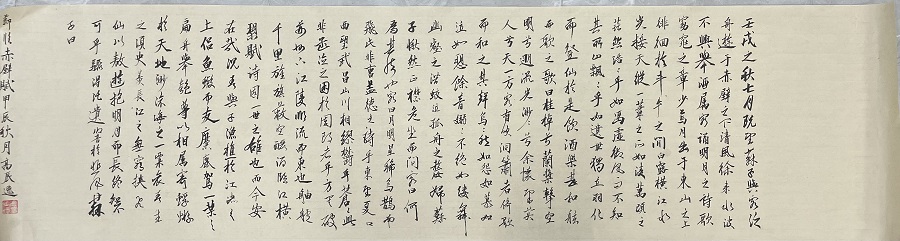 壬戌之秋七月既望蘇子與客泛
舟遊于赤壁之下清風徐来水波
不興舉酒屬客誦明月之詩歌
窈窕之章少焉月出于東山之上
徘徊於斗牛之間白露横江水
光接天縱一葦之所如凌萬頃之
茫然浩浩乎如馮虚御風而不知
其所止飄飄乎如遺世獨立羽化
而登仙於是飲酒樂甚扣舷
而歌之歌曰桂棹兮蘭槳擊空
明兮溯流光渺渺兮余懷望美
人兮天一方客有吹洞簫者倚歌
而和之其聲嗚嗚然如怨如慕如
泣如訴餘音嫋嫋不絶如縷舞
幽壑之潛蛟泣孤舟之嫠婦蘇
子愀然正襟危坐而問客曰何
為其然也客曰月明星稀烏鵲南
飛此非曹孟德之詩乎東望夏口
西望武昌山川相繆鬱乎蒼蒼此
非孟德之困於周郎者乎方其破
荆州下江陵順流而東也舳艫
千里旌旗蔽空釃酒臨江横
槊賦诗固一世之雄也而今安
在哉况吾與子漁樵於江渚之
上侣魚蝦而友麋鹿駕一葉之
扁舟舉匏尊以相屬寄蜉蝣
於天地渺滄海之一粟哀吾生
之須臾羡長江之無窮挾飛
仙以敖遊抱明月而長終知不
可乎驟得託遺響於悲風蘇
子曰
赤壁賦甲辰秋月高民